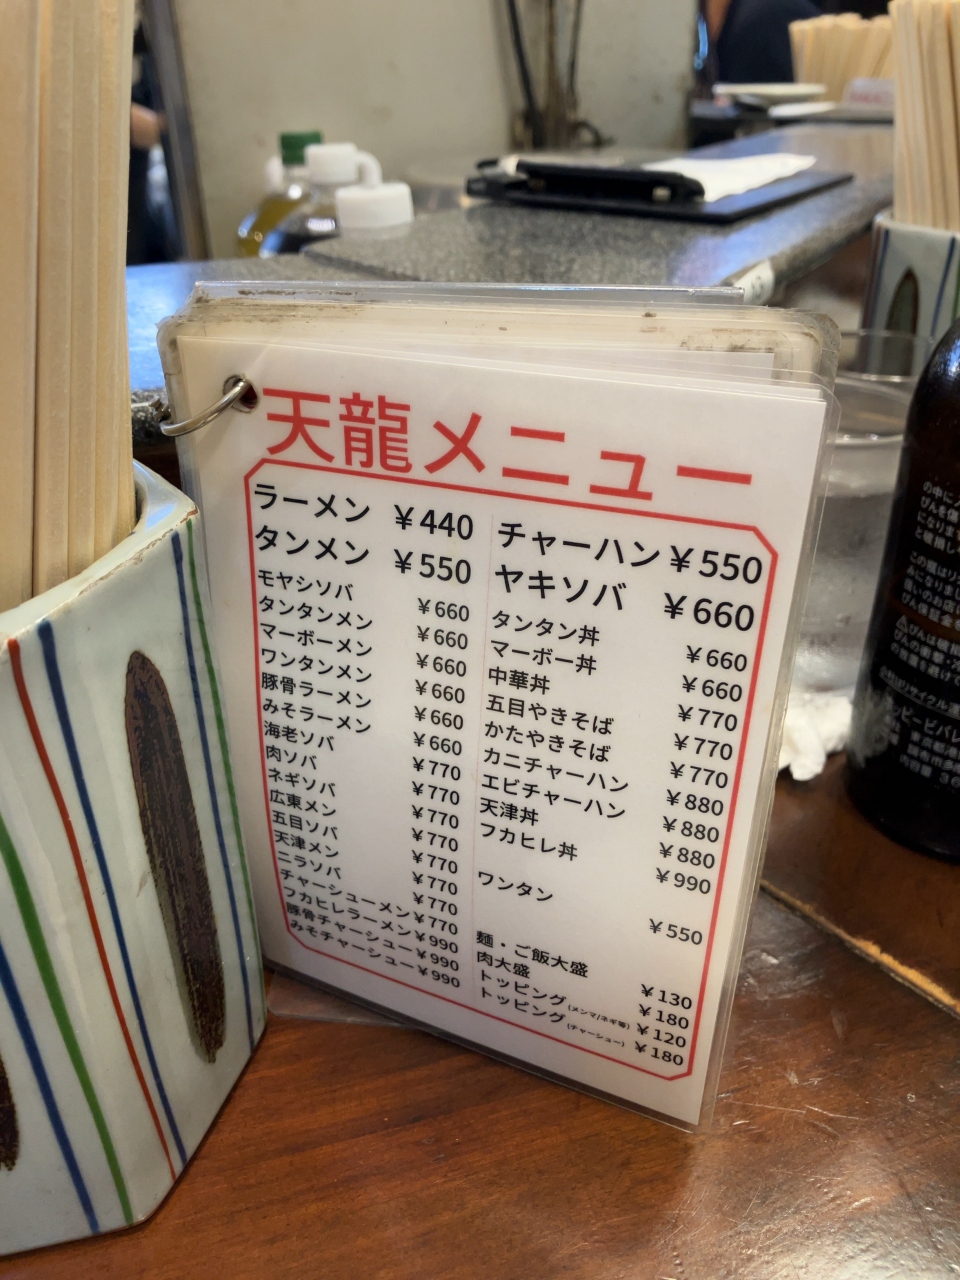 天龍メニュー
ラーメン ￥440
タンメン ￥550
モヤシソバ ￥660
タンタンメン ￥660
マーボーメン ￥660
ワンタンメン ￥660
豚骨ラーメン ￥660
みそラーメン ￥660
海老ソバ ￥770
肉ソバ ￥770
ネギソバ ￥770
広東メン ￥770
五目ソバ ￥770
天津メン ￥770
ニラソバ ￥770
チャーシューメン ￥770
フカヒレラーメン ￥990
豚骨チャーシュー ￥990
みそチャーシュー ￥990
チャーハン ￥550
ヤキソバ ￥660
タンタン丼 ￥660
マーボー丼 ￥660
中華丼 ￥770
五目やきそば ￥770
かたやきそば ￥770
カニチャーハン ￥880
エビチャーハン ￥880
天津丼 ￥880
フカヒレ丼 ￥990
ワンタン ￥550
麺・ご飯大盛 ￥130
肉大盛 ￥180
トッピング (メンマ/ネギ等) ￥120
トッピング (チャーシュー) ￥180